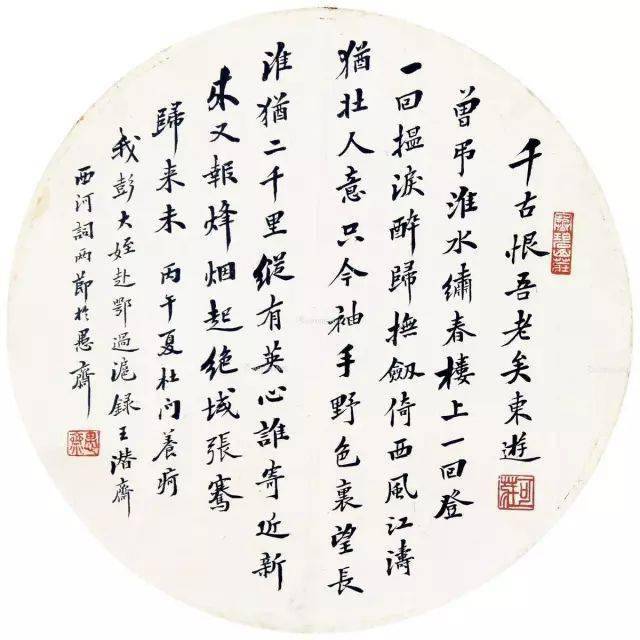 千古恨吾老矣東遊
曾弔淮水繡春樓上一回登
一回揾淚醉歸撫劍倚西風江濤
猶壯人意只今袖手野色裏望長
淮猶二千里縱有英心誰寄近新
來又報烽烟起絕域張騫
歸来未 丙午夏杜门養疴
我彭大姪赴鄂過滬録王潛齋
西河詞兩節於愚齋
愚齋